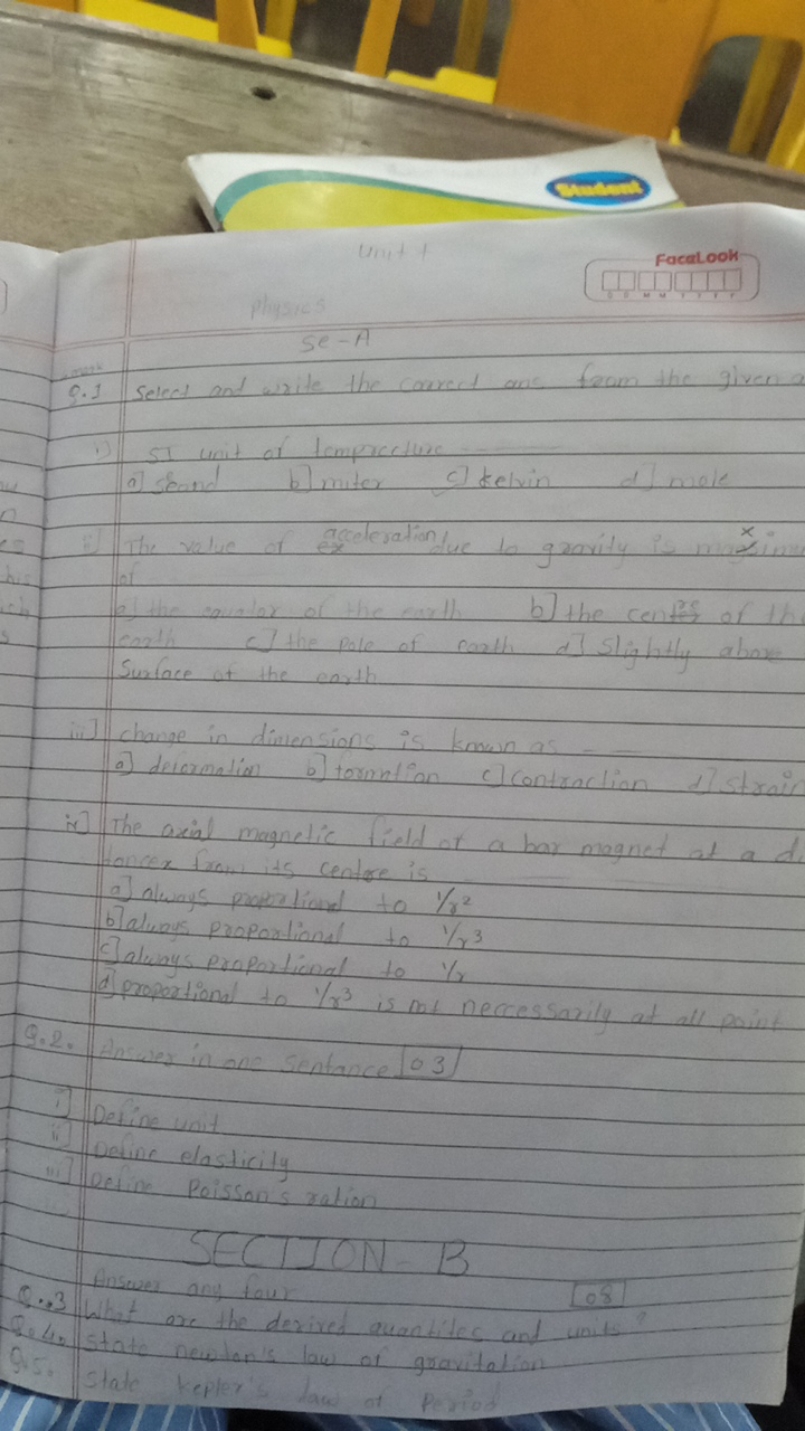 Student
Unit 1
FaceLook
D D M M Y Y Y Y
Physics
Se-A
Q.1 Select and write the correct ans from the given
i) SI unit of tempreture
a] skand b] miter c] kelvin d] mole
ii] The value of acceleration due to gravity is
of
a] the equator of the earth b] the centre of
earth c] the pole of earth d] Slightly above
Surface of the earth
iii] change in dimensions is known as
a] deformation b] formation c] contraction d] strain
iv] The axial magnetic field of a bar magnet at a
from its centre is
a] always proportional to 1/r²
b] always proportional to 1/r³
c] always proportional to 1/r
d] proportional to 1/r³ is not neccessarily at all point
Q.2. Answer in one Sentance [03]
i] Define unit
ii] Define elasticity
iii] Define Poisson's ration
SECTION - B
Answer any four [08]
Q.3 What are the derived quantites and units?
Q.4. State newton's law of gravitation
Q.5. State kepler's law of Period